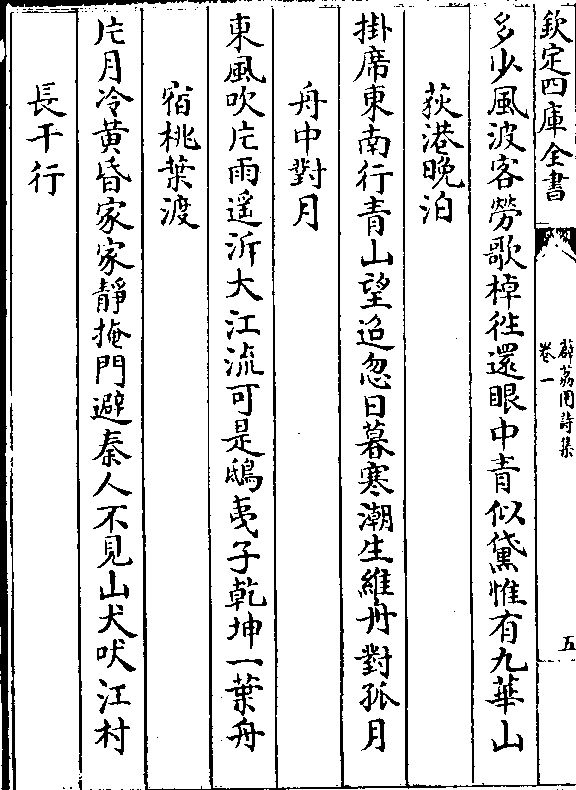 欽定四庫全書
薜荔園詩集
卷一
五
多少風波客勞歌棹往還眼中青似黛惟有九華山
荻港晚泊
掛席東南行青山望迢忽日暮寒潮生維舟對孤月
舟中對月
東風吹片雨遥泝大江流可是鴟夷子乾坤一葉舟
宿桃葉渡
片月冷黃昏家家靜掩門避秦人不見山犬吠江村
長干行